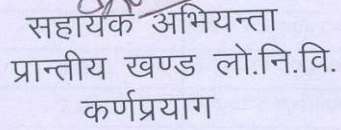 सहायक अभियन्ता
प्रान्तीय खण्ड लो.नि.वि.
कर्णप्रयाग